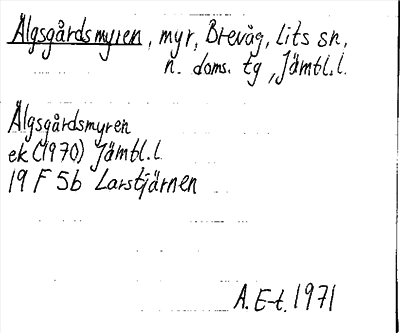 Älgsgårdsmyren, myr, Brevåg, Lits sn,
n. doms. tg, Jämtl.l.
Älgsgårdsmyren
ek (1970) Jämtl.l.
19 F 5b Larstjärnen
A. E-t. 1971